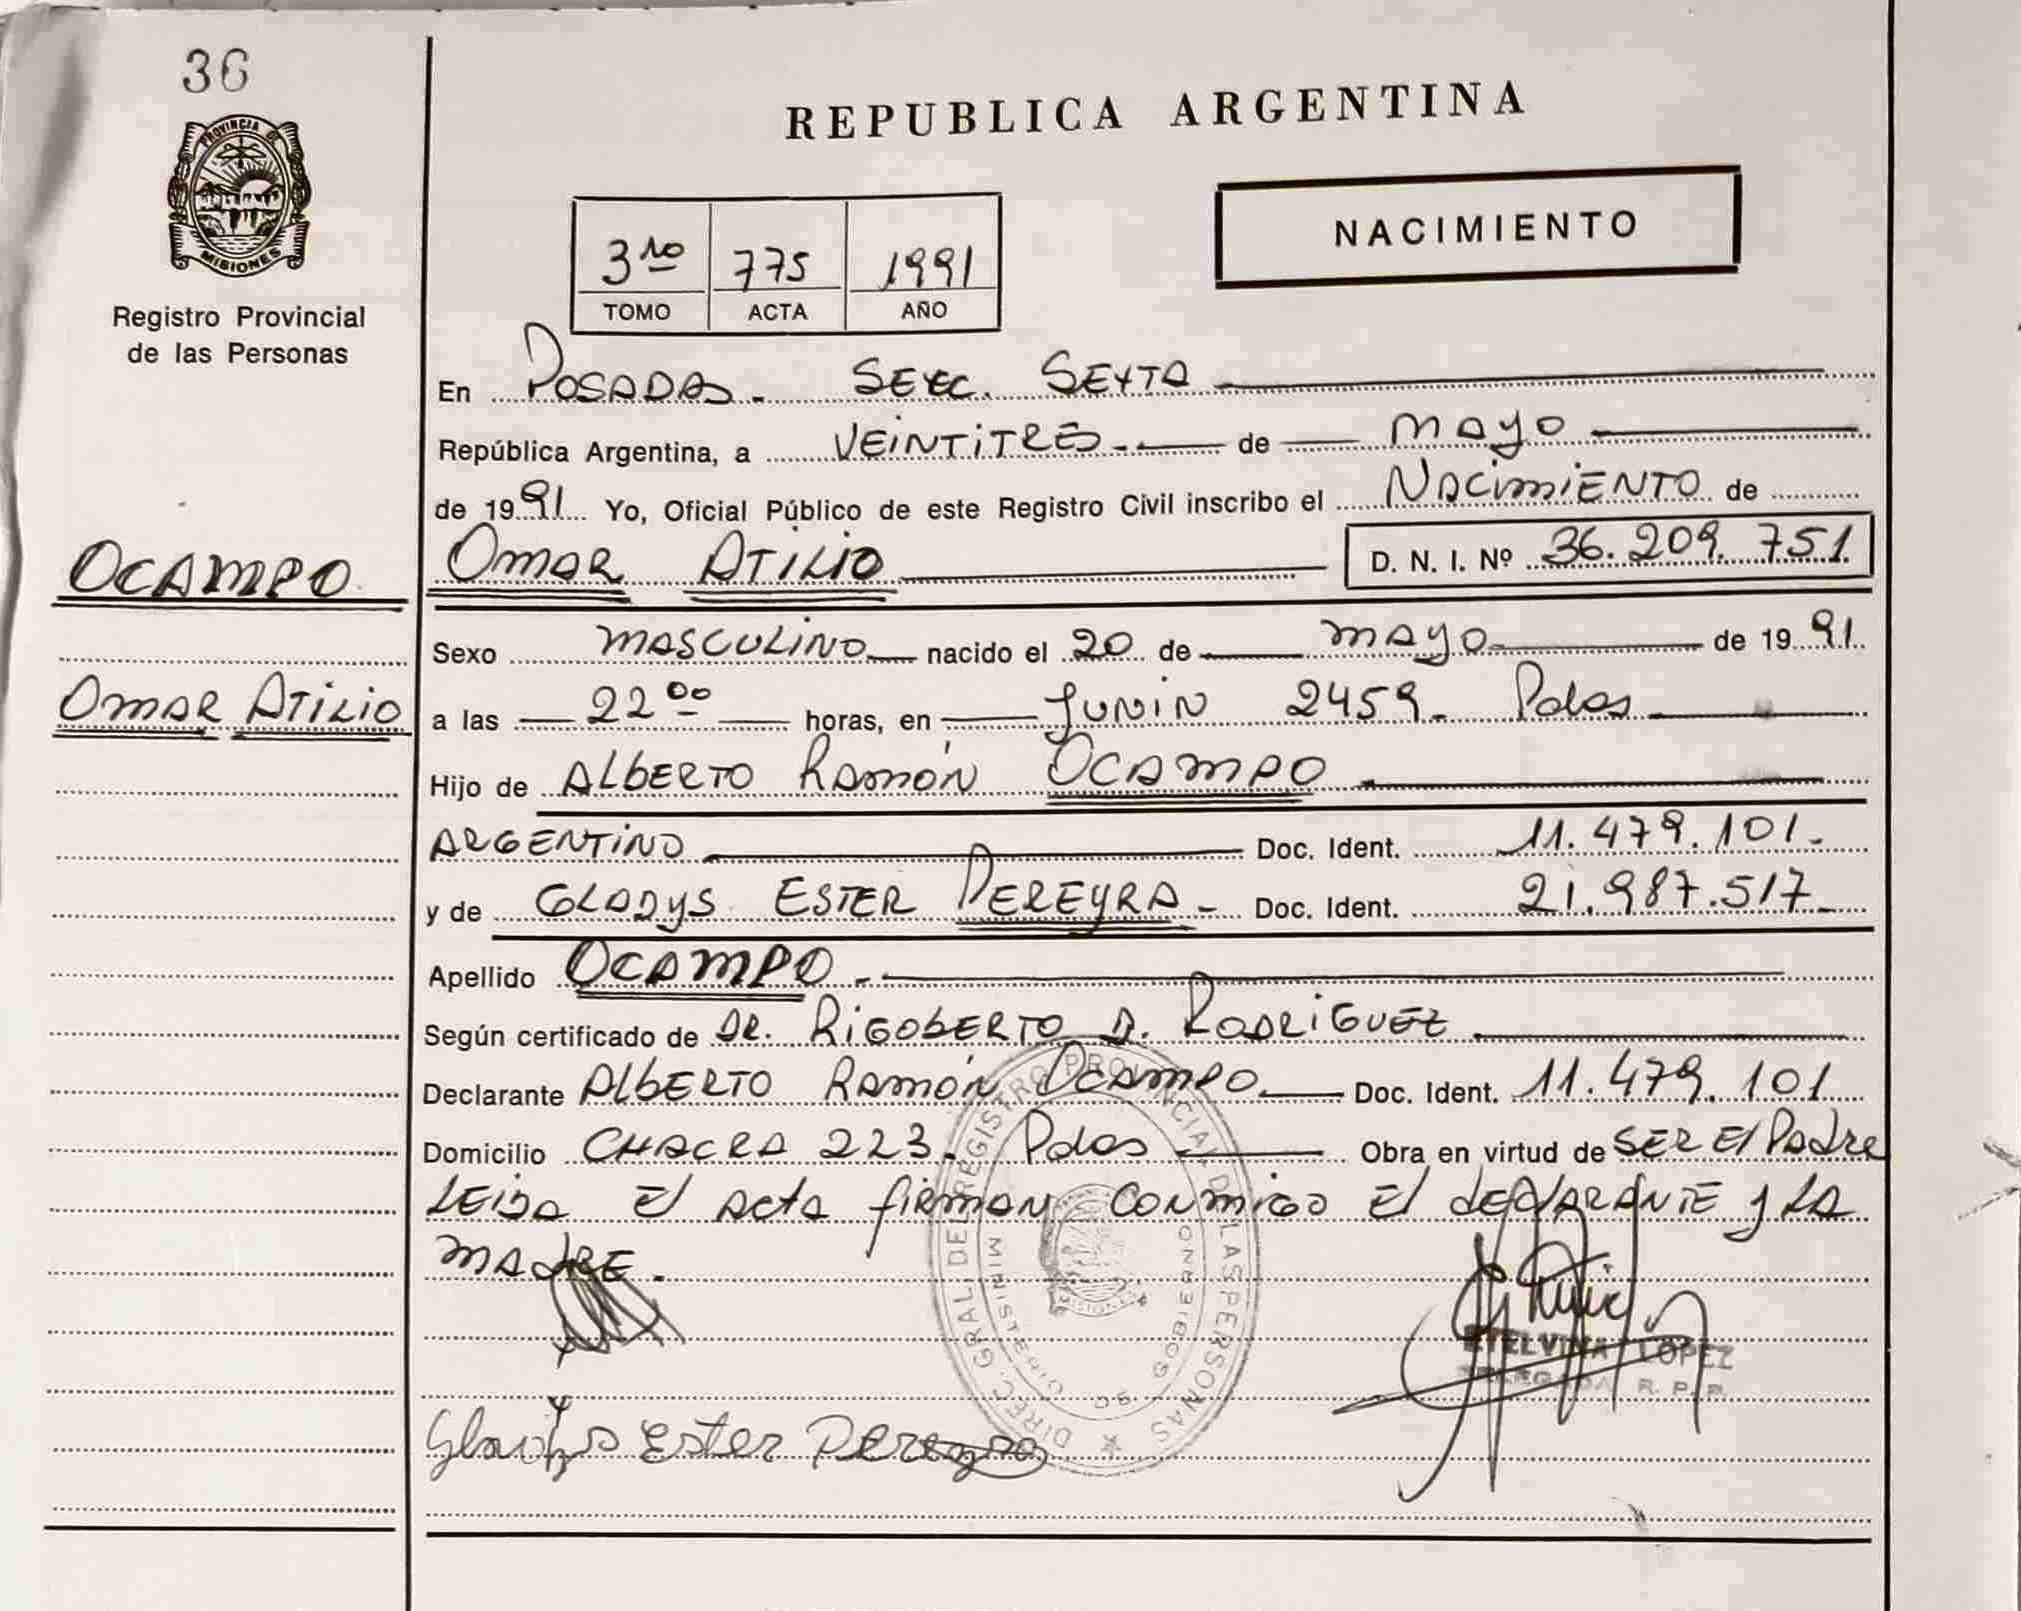 36
PROVINCIA DE
MISIONES
Registro Provincial
de las Personas
OCAMPO
Omar Atilio
REPUBLICA ARGENTINA
NACIMIENTO
3ro 775 1991
TOMO ACTA AÑO
En Posadas - Secc. Sexta
República Argentina, a Veintitres de mayo
de 1991 Yo, Oficial Público de este Registro Civil inscribo el Nacimiento de
Omar Atilio D. N. I. Nº 36.209.751
Sexo masculino nacido el 20 de mayo de 1991
a las 22 00 horas, en Junin 2459 - Pdas
Hijo de Alberto Ramón Ocampo
Argentino Doc. Ident. 11.479.101.-
y de Gladys Ester Pereyra - Doc. Ident. 21.987.517-
Apellido Ocampo -
Según certificado de Dr. Rigoberto D. Rodriguez
Declarante Alberto Ramón Ocampo Doc. Ident. 11.479.101
Domicilio Chacra 223. Pdas Obra en virtud de ser el Padre
Leida el acta firman conmigo el declarante y la
madre.
DIREC. GRAL. DEL REGISTRO PROVINCIAL DE LAS PERSONAS
MINISTERIO DE GOBIERNO
MISIONES
ETELVINA LOPEZ
DELEGADA R. P. P.
Gladys Ester Pereyra